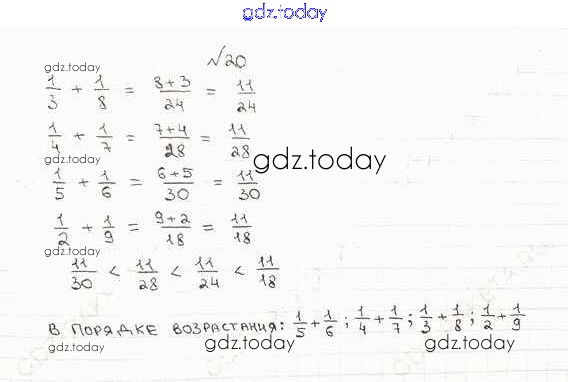 gdz.today
№20
gdz.today
1/3 + 1/8 = 8+3/24 = 11/24
1/4 + 1/7 = 7+4/28 = 11/28
gdz.today
gdz.today
1/5 + 1/6 = 6+5/30 = 11/30
1/2 + 1/9 = 9+2/18 = 11/18
gdz.today
11/30 < 11/28 < 11/24 < 11/18
В ПОРЯДКЕ ВОЗРАСТАНИЯ: 1/5 + 1/6 ; 1/4 + 1/7 ; 1/3 + 1/8 ; 1/2 + 1/9
gdz.today gdz.today gdz.today